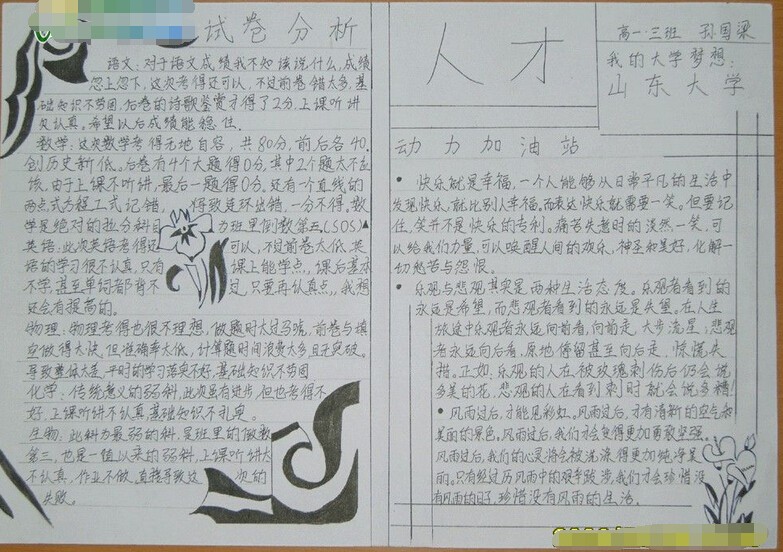 试卷分析
语文:对于语文成绩我不知该说什么,成绩
忽上忽下,这次考得还可以,不过前卷错太多,基
础知识不劳固,后卷的诗歌鉴赏才得了2分,上课听讲
欠认真。希望以后成绩能稳住。
数学:这次数学考得无地自容,共80分,前后各40,
创历史新低。后卷有4个大题得0分,其中2个题太不应
该,由于上课不听讲,最后一题得0分,还有一个直线的
两点式方程工式记错,得致连环出错,一分不得。数
学是绝对的拉分科目 为班里倒数第五(SOS)▲
英语:此次英语考得还可以,不过前卷太低,英
语的学习很不认真,只有课上能学点,课后基本
不学,甚至单词都背不过,只要再认真点,我想
还会有提高的。
物理:物理考得也很不理想,做题时太过马虎,前卷与填
空做得太快,但准确率太低,计算题时间浪费太多且无突破。
导致整体太差,平时的学习落实不好,基础知识不劳固
化学:传统意义的弱科,此次虽有进步,但也考得不
好,上课听讲不认真,基础知识不扎实。
生物:此科为最弱的科,是班里的倒数
第三,也是一值以来的弱科,上课听讲太
不认真,作业不做,直接导致这次的
失败。
人才
高一·三班 孙国梁
我的大学梦想:
山东大学
动力加油站
• 快乐就是幸福,一个人能够从日常平凡的生活中
发现快乐,就比别人幸福,而表达快乐就需要一笑。但要记
住,笑并不是快乐的专利。痛苦失意时的淡然一笑,可
以给我们力量,可以唤醒人间的欢乐,神圣和美好,化解一
切愁苦与怨恨。
• 乐观与悲观其实是两种生活态度。乐观者看到的
永远是希望,而悲观者看到的永远是失望。在人生
旅途中乐观者永远向前看,向前走,大步流星;悲观
者永远向后看,原地停留甚至向后走,惊慌失
措。正如,乐观的人在被玫瑰刺伤后仍会说
多美的花,悲观的人在看到刺时就会说多糟!
• 风雨过后,才能见彩虹。风雨过后,才有清新的空气和
美丽的景色。风雨过后,我们才会变得更加勇敢坚强。
风雨过后,我们的心灵将会被洗涤得更加纯净美
丽。只有经过历风雨中的艰辛跋涉,我们才会珍惜没
有风雨的日子,珍惜没有风雨的生活.